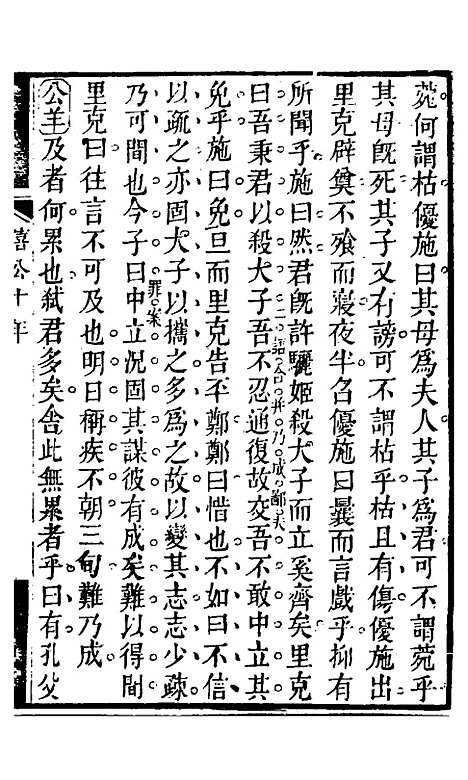 菀何謂枯優施曰其母爲夫人其子爲君可不謂菀乎
其母旣死其子又有謗可不謂枯乎枯且有傷優施出
里克辟奠不飱而寢夜半召優施曰曩而言戲乎抑有
所聞乎施曰然君旣許驪姬殺大子而立奚齊矣里克
曰吾秉君以殺大子吾不忍通復故交吾不敢中立其
二語合幷乃成鄙夫
免乎施曰免旦而里克告丕鄭鄭曰惜也不如曰不信
以疏之亦固大子以攜之多爲之故以變其志志少疎
乃可間也今子曰中立況固其謀彼有成矣難以得間
罪案
里克曰往言不可及也明日稱疾不朝三旬難乃成
公羊及者何累也弑君多矣舎此無累者乎曰有孔父
僖公十年